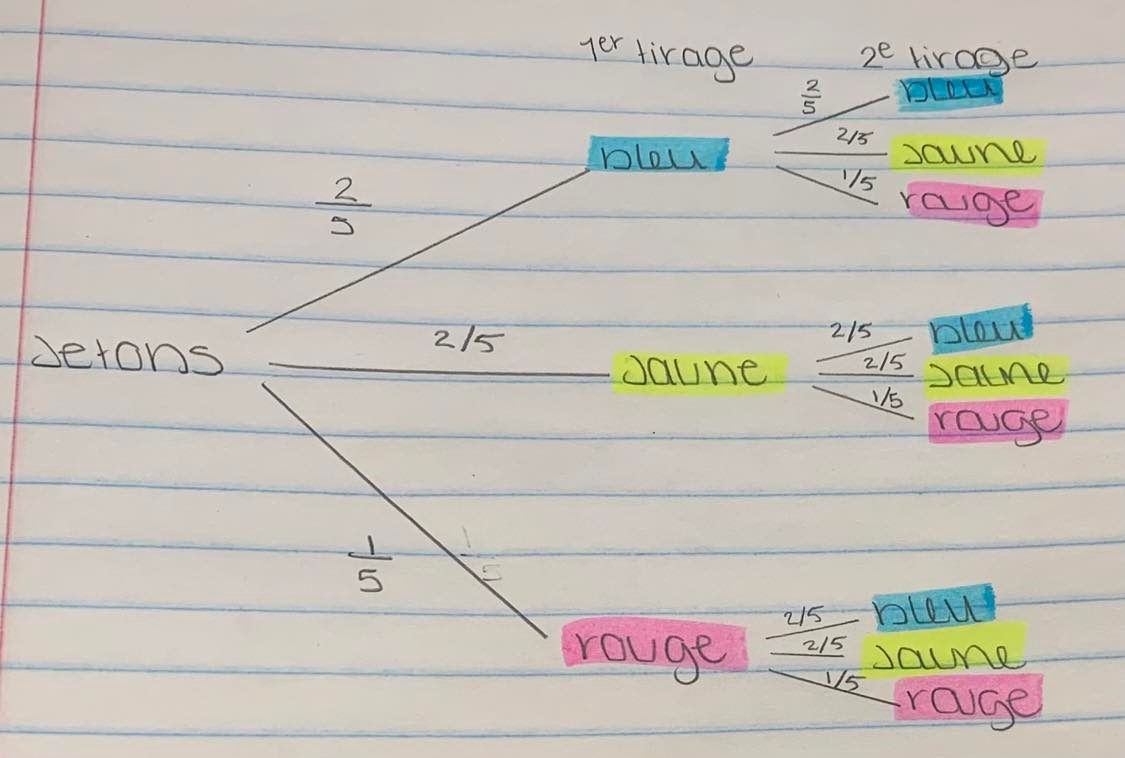 1er tirage 2e tirage
2/5 bleu
bleu 2/5 Jaune
2/5 1/5 rouge
2/5 bleu
Jetons 2/5 Jaune 2/5 Jaune
1/5 rouge
1/5 1/5
2/5 bleu
rouge 2/5 Jaune
1/5 rouge